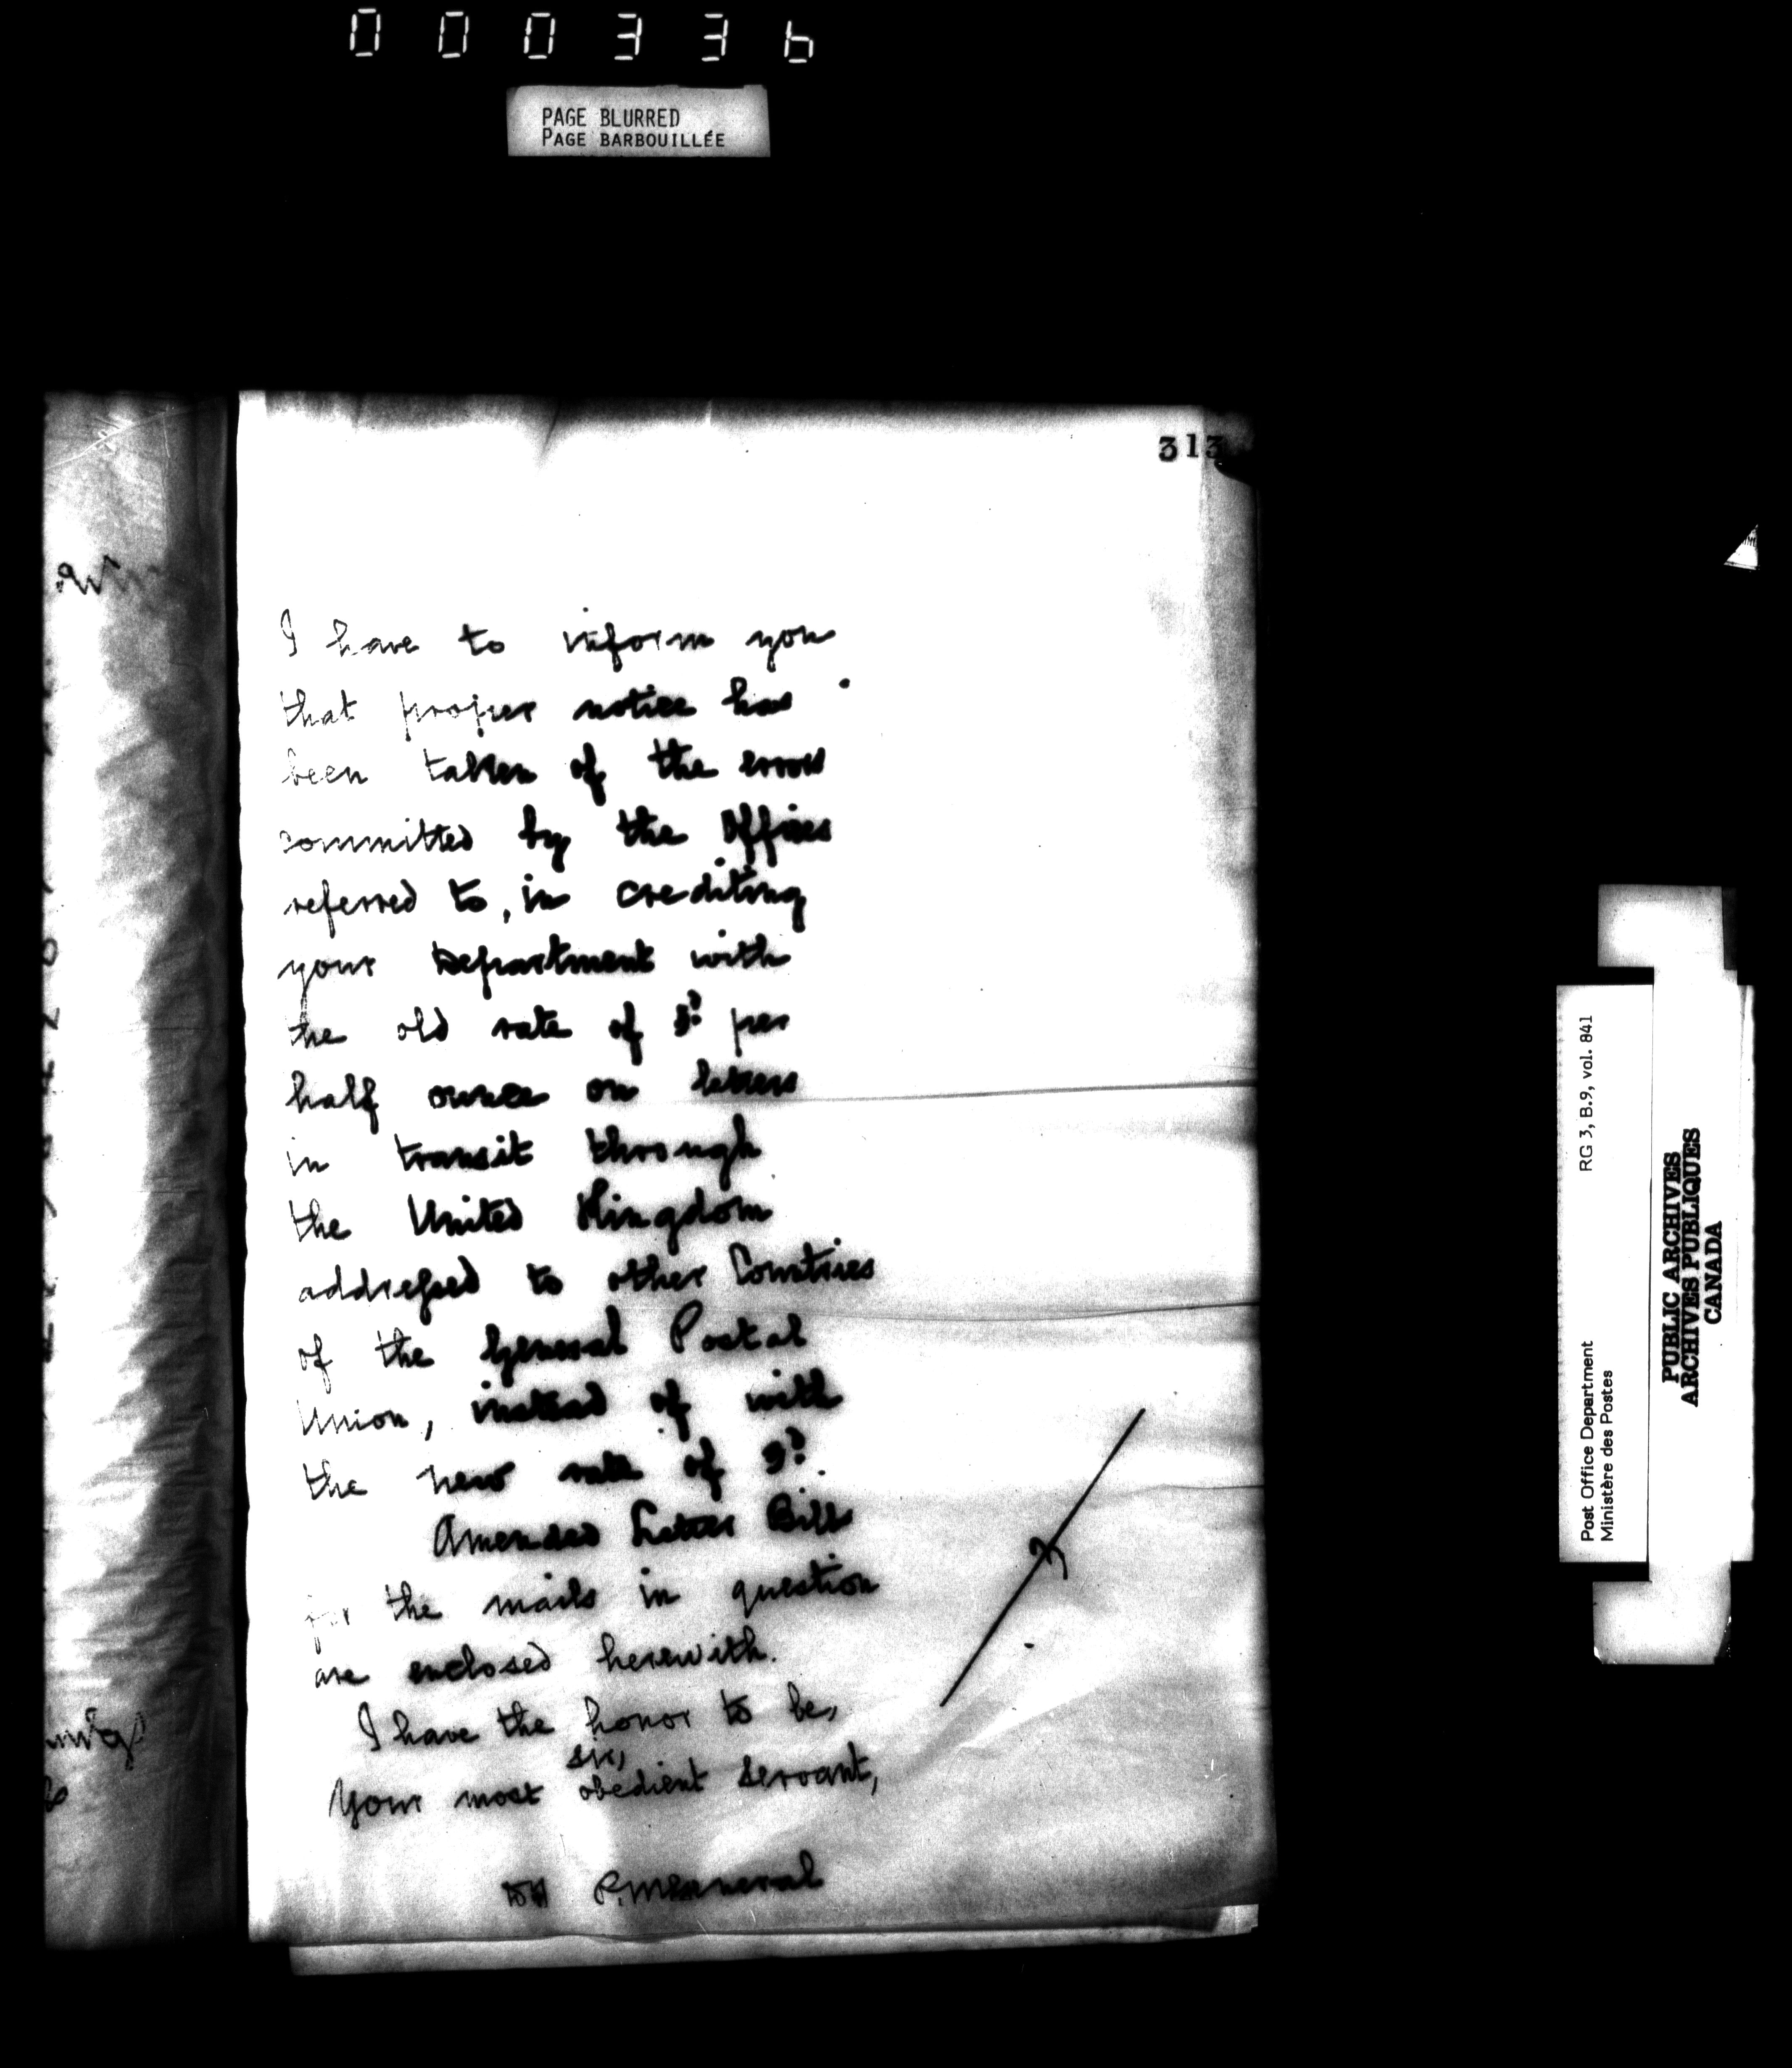 000336
PAGE BLURRED
PAGE BARBOUILLÉE
313
I have to inform you
that proper notice has
been taken of the errors
committed by the Offices
referred to, in crediting
your Department with
the old rate of per
half ounce on letters
in transit through
the United Kingdom
addressed to other Countries
of the General Postal
Union, instead of with
the new rate of
Amended Letter Bills
for the mails in question
are enclosed herewith.
I have the honor to be,
Sir,
Your most obedient servant,
P.M. General
Post Office Department RG 3, B.9, vol. 841
Ministère des Postes
PUBLIC ARCHIVES
ARCHIVES PUBLIQUES
CANADA